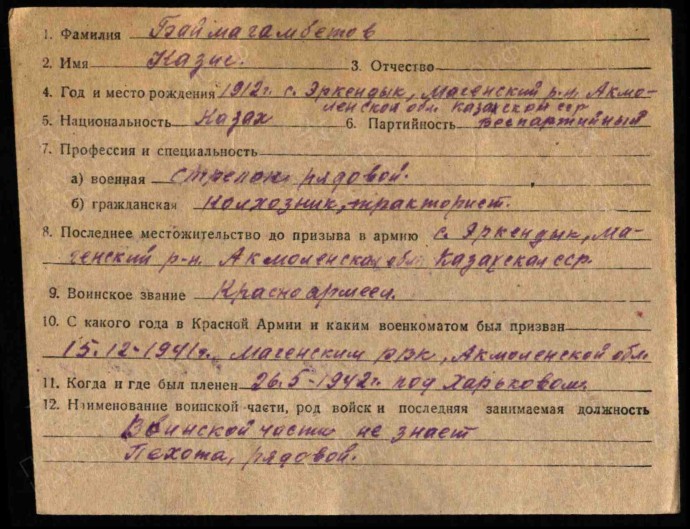 1. Фамилия Баймагамбетов
2. Имя Казис. 3. Отчество
4. Год и место рождения 1912 г. с. Эркендык, Магенский р-н. Акмо-
ленской обл. Казахской сср
5. Национальность Казах 6. Партийность беспартийный
7. Профессия и специальность
а) военная стрелок рядовой.
б) гражданская колхозник, тракторист.
8. Последнее местожительство до призыва в армию с. Эркендык, Ма-
генский р-н. Акмоленская обл. Казахская сср.
9. Воинское звание Красноармеец.
10. С какого года в Красной Армии и каким военкоматом был призван
15.12-1941г. Магенским РВК, Акмоленской обл.
11. Когда и где был пленен 26.5-1942г. под Харьковом.
12. Наименование воинской части, род войск и последняя занимаемая должность
Воинской части не знает
Пехота, рядовой.